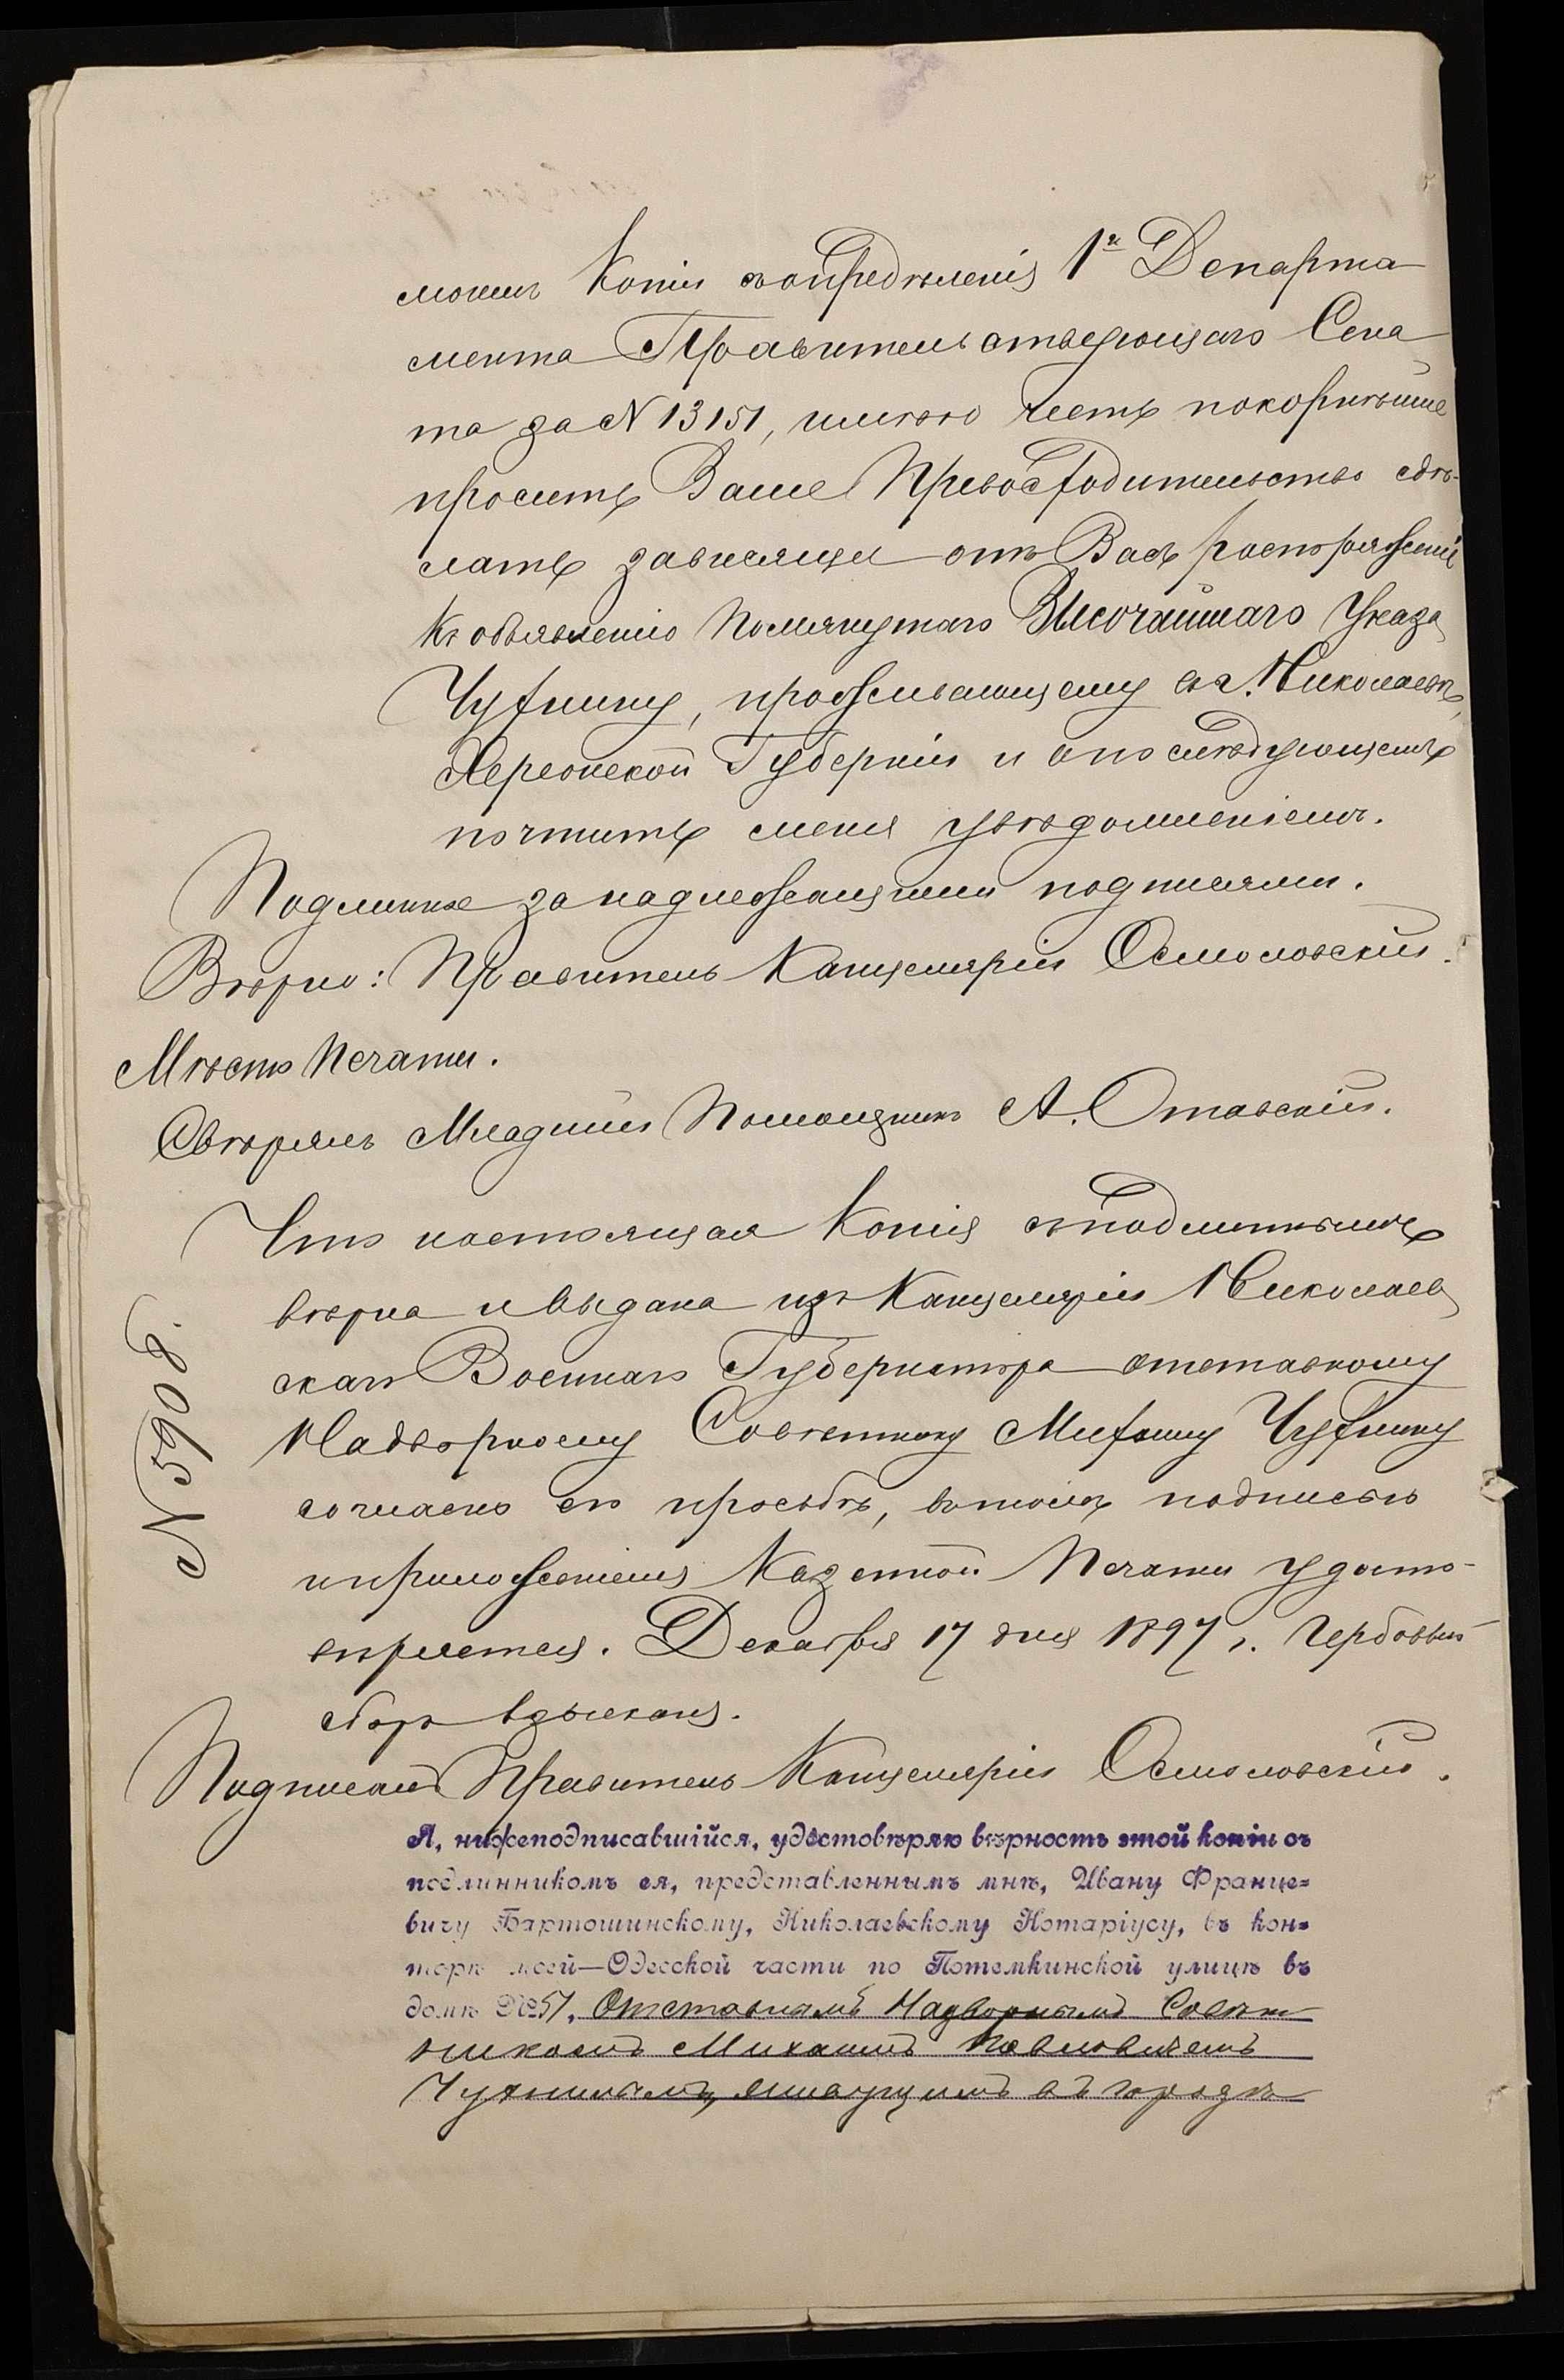 моемъ Копіи съ опредѣленія 1го Департа
мента Правительствующаго Сена
та за N 13151, имѣю честь покорнѣйше
просить Ваше Превосходительство сдѣ-
лать зависящее отъ Васъ распоряженіе
къ объявленію помянутаго Высочайшаго Указа
Чухнину, проживающему въ г. Николаевѣ,
Херсонской Губерніи и о послѣдующемъ
почтить меня увѣдомленіемъ.
Подлинное за надлежащими подписями.
Вѣрно: Правитель Канцеляріи Осмоловскій.
Мѣсто Печати.
Свѣрялъ Младшій Помощникъ А. Отавскій.
Что настоящая Копія съ подлиннымъ
вѣрна и выдана изъ Канцеляріи Николаев
скаго Военнаго Губернатора отставному
Надворному Совѣтнику Михаилу Чухнину
согласно его просьбѣ, въ томъ подписью
и приложеніемъ Казенной Печати удосто-
вѣряется. Декабря 17 дня 1897 г. Гербовый
сборъ взысканъ.
N 5908.
Подписалъ Правитель Канцеляріи Осмоловскій.
Я, нижеподписавшійся, удостовѣряю вѣрность этой копіи съ
подлинникомъ ея, представленнымъ мнѣ, Ивану Франце=
вичу Бартошинскому, Николаевскому Нотаріусу, въ кон=
торѣ моей—Одесской части по Потемкинской улицѣ въ
домѣ №51, Отставнымъ Надворнымъ Совѣт
никомъ Михаиломъ Павловичемъ
Чухнинымъ, живущимъ въ городѣ